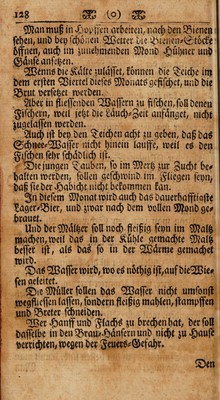 128 (o)
Man muß in Hopffen arbeiten, nach den Bienen
sehen, und bey schönen Wetter die Bienen-Stöcke
öffnen, auch im zunehmenden Mond Hühner und
Gänse ansetzen.
Wenns die Kälte zulässet, können die Teiche im
dem ersten Viertel dieses Monats gefischet, und die
Brut versetzet werden.
Aber in fliessenden Wassern zu fischen, soll denen
Fischern, weil jetzt die Läuch-Zeit anfänget, nicht
zugelassen werden.
Auch ist bey den Teichen acht zu geben, daß das
Schnee-Wasser nicht hinein lauffe, weil es den
Fischen sehr schädlich ist.
Die jungen Tauben, so im Mertz zur Zucht be-
halten werden, sollen geschwind im Fliegen seyn,
daß sie der Habicht nicht bekommen kan.
In diesem Monat wird auch das dauerhafftigste
Lager-Bier, und zwar nach dem vollen Mond ge-
brauet.
Und der Mältzer soll noch fleißig seyn im Maltz
machen, weil das in der Kühle gemachte Maltz
besser ist, als das so in der Wärme gemachet
wird.
Das Wasser wird, wo es nöthig ist, auf die Wie-
sen geleitet.
Die Müller sollen das Wasser nicht umsonst
wegfliessen lassen, sondern fleißig mahlen, stampffen
und Breter schneiden.
Wer Hanff und Flachs zu brechen hat, der soll
dasselbe in den Brau-Häusern und nicht zu Hause
verrichten, wegen der Feuers-Gefahr.
Den